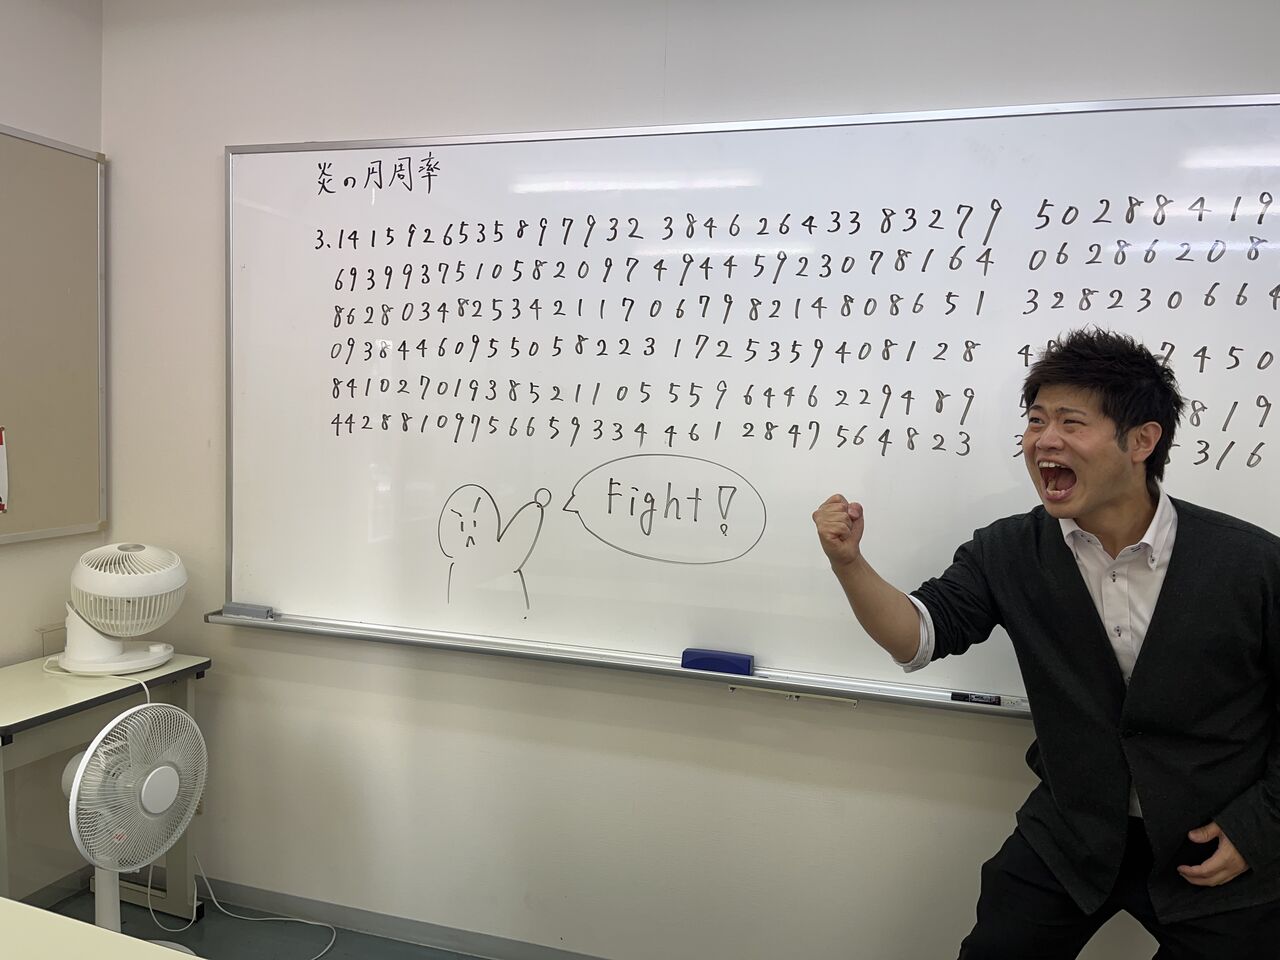 炎の円周率
3.14159265358979323846264338327950288419
69399375105820974944592307816406286208
86280348253421170679821480865132823066 4
09384460955058223172535940812847450
841027019385211055596446229489819
44288109756659334461284756482316
Fight!